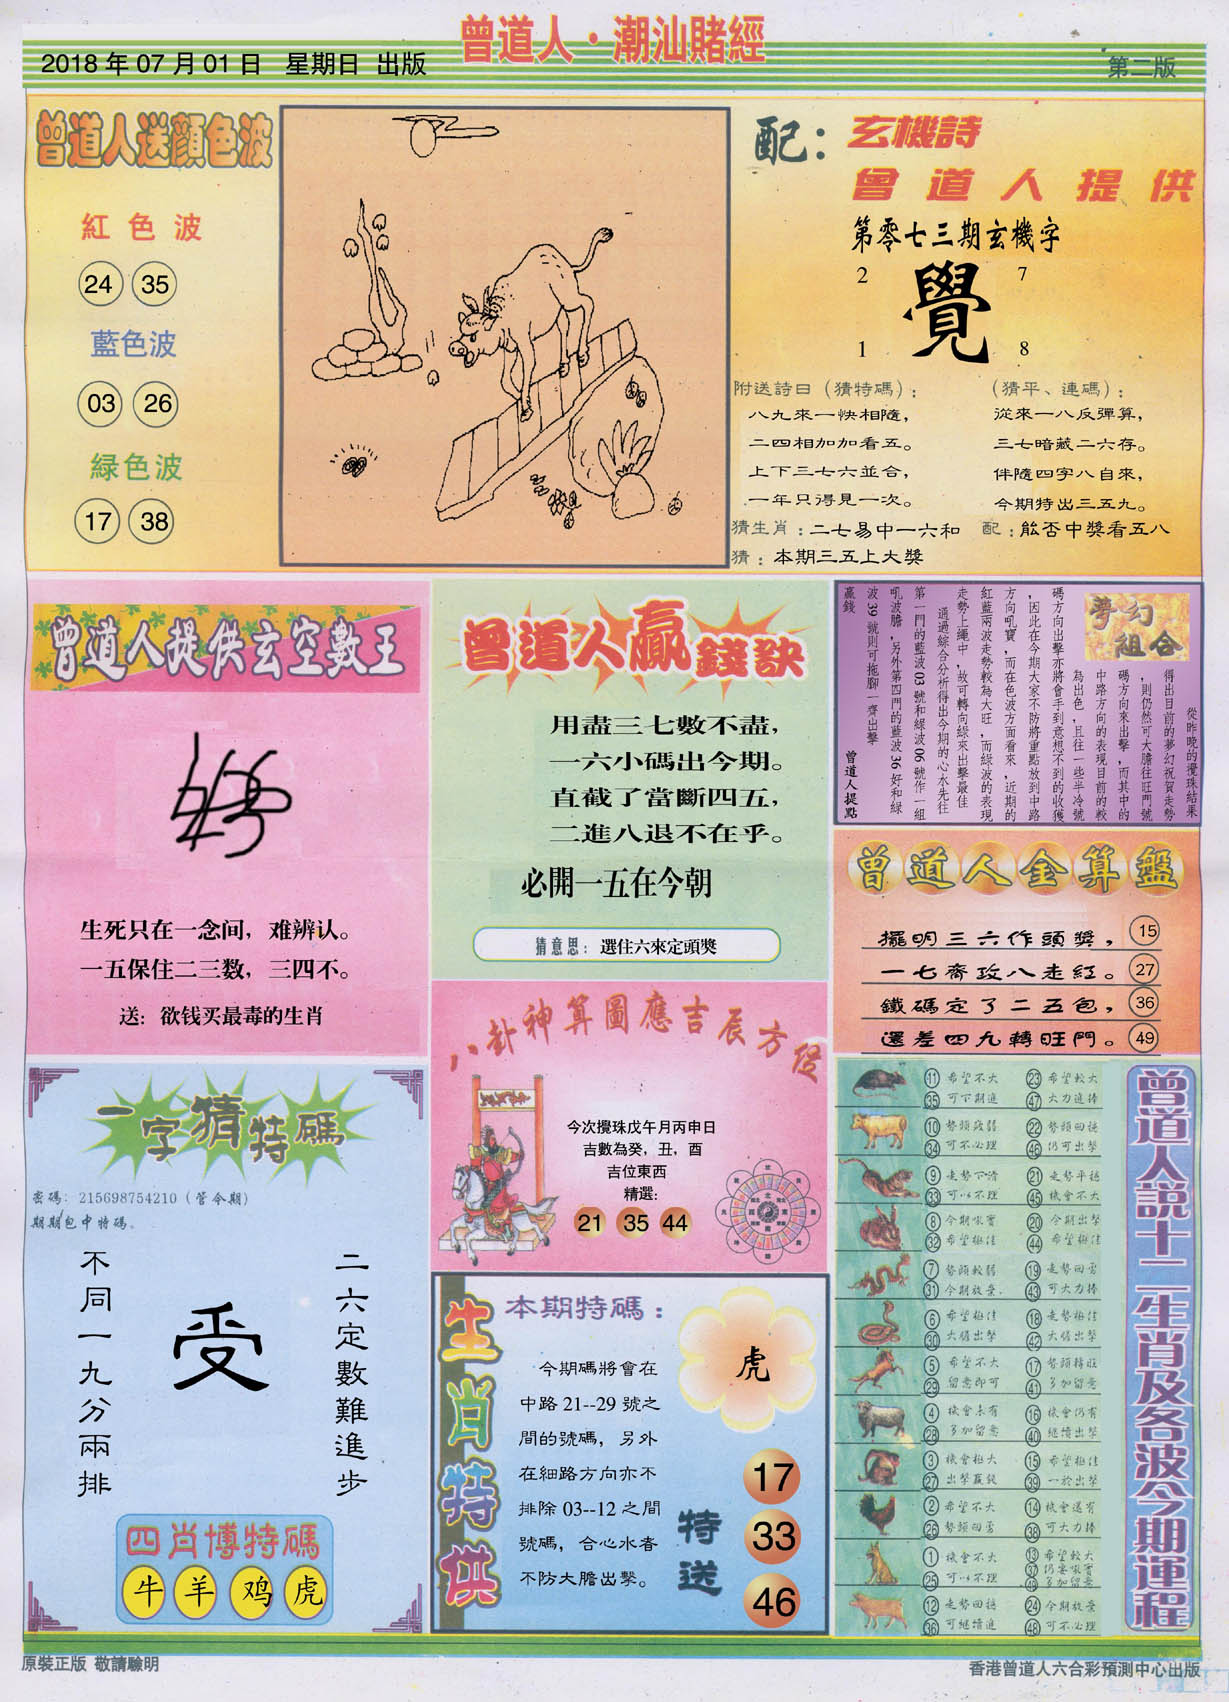 曾道人·潮汕賭經
2018年07月01日 星期日 出版
第二版
曾道人送顏色波
紅色波
24 35
藍色波
03 26
緑色波
17 38
配：玄機詩
曾道人提供
第零七三期玄機字
2 7
覺
1 8
附送詩日（猜特碼）：
八九來一快相隨，
二四相加加看五。
上下三七六並合，
一年只得見一次。
（猜平、連碼）：
從來一八反彈算，
三七暗藏二六存。
伴隨四字八自來，
今期特出三五九。
猜生肖：二七易中一六和
配：能否中獎看五八
猜：本期三五上大獎
曾道人提供玄空數王
生死只在一念间，难辨认。
一五保住二三数，三四不。
送：欲钱买最毒的生肖
曾道人贏錢訣
用盡三七數不盡，
一六小碼出今期。
直截了當斷四五，
二進八退不在乎。
必開一五在今朝
猜意思：選住六來定頭獎
夢幻組合
從昨晚的攪珠結果
得出目前的夢幻祝賀走勢
，則仍然可大膽往旺門號
碼方向來出擊，而其中的
中路方向的表現目前的較
為出色，且往一些半冷號
碼方向出擊亦將會手到意想不到的收獲
，因此在今期大家不防將重點放到中路
方向吼寶，而在色波方面看來，近期的
紅藍兩波走勢較為大旺，而綠波的表現
走勢上繩中，故可轉向綠來出擊最佳
通過綜合分析得出今期的心水先往
第一門的藍波03號和綠波06號作一組
吼波膽，另外第四門的藍波36好和綠
波39號則可拖腳一齊出擊
贏錢
曾道人提點
曾道人金算盤
擺明三六作頭獎， 15
一七齊攻八走紅。 27
鐵碼定了二五包， 36
還差四九轉旺門。 49
八卦神算圖應吉辰方位
今次攪珠戊午月丙申日
吉數為癸，丑，酉
吉位東西
精選：
21 35 44
一字猜特碼
密碼：215698754210（管令期）
期期包中特碼。
二六定數難進步
受
不同一九分兩排
四肖博特碼
牛 羊 鸡 虎
生肖特供
本期特碼：
今期碼將會在
中路21--29號之
間的號碼，另外
在細路方向亦不
排除03--12之間
號碼，合心水者
不防大膽出擊。
虎
特送
17
33
46
曾道人説十二生肖及各波今期運程
11 希望不大 23 希望較大
35 可下期進 47 大力進捧
10 勢頭疲弱 22 勢頭回穩
34 可不必理 46 仍可出擊
9 走勢下滑 21 走勢平穩
33 可以不理 45 機會不大
8 今期吼寶 20 今期出擊
32 希望極佳 44 希望極佳
7 勢頭較弱 19 走勢回勇
31 今期放棄 43 可大力捧
6 希望極佳 18 走勢極佳
30 大膽出擊 42 大膽出擊
5 希望不大 17 勢頭轉旺
29 留意即可 41 多加留意
4 機會未有 16 機會仍有
28 多加留意 40 繼續出擊
3 機會極大 15 希望極佳
27 出擊贏錢 39 一於出擊
2 希望不大 14 機會還有
26 勢頭回勇 38 可大力捧
1 機會不大 13 希望較大
25 可以不理 37 仍要吼寶
49 多加留意
12 走勢回穩 24 今期放棄
36 可繼續進 48 可不必理
原裝正版 敬請驗明
香港曾道人六合彩預測中心出版